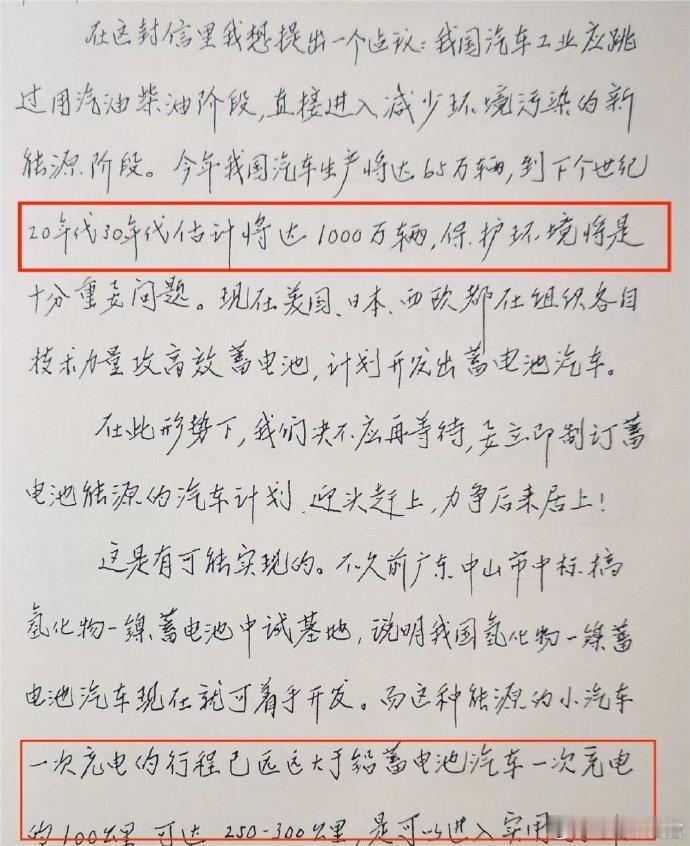 在这封信里我想提出一个建议：我国汽车工业应跳
过用汽油柴油阶段，直接进入减少环境污染的新
能源阶段。今年我国汽车生产将达65万辆，到下个世纪
20年代30年代估计将达1000万辆，保护环境将是
十分重要问题。现在美国、日本、西欧都在组织各自
技术力量攻高效蓄电池，计划开发出蓄电池汽车。
在此形势下，我们决不应再等待，要立即制订蓄
电池能源的汽车计划，迎头赶上，力争后来居上！
这是有可能实现的。不久前广东中山市中标搞
氢化物一镍蓄电池中试基地，说明我国氢化物一镍蓄
电池汽车现在就可着手开发。而这种能源的小汽车
一次充电的行程已远远大于铅蓄电池汽车一次充电
的100公里，可达250-300公里，是可以进入实用